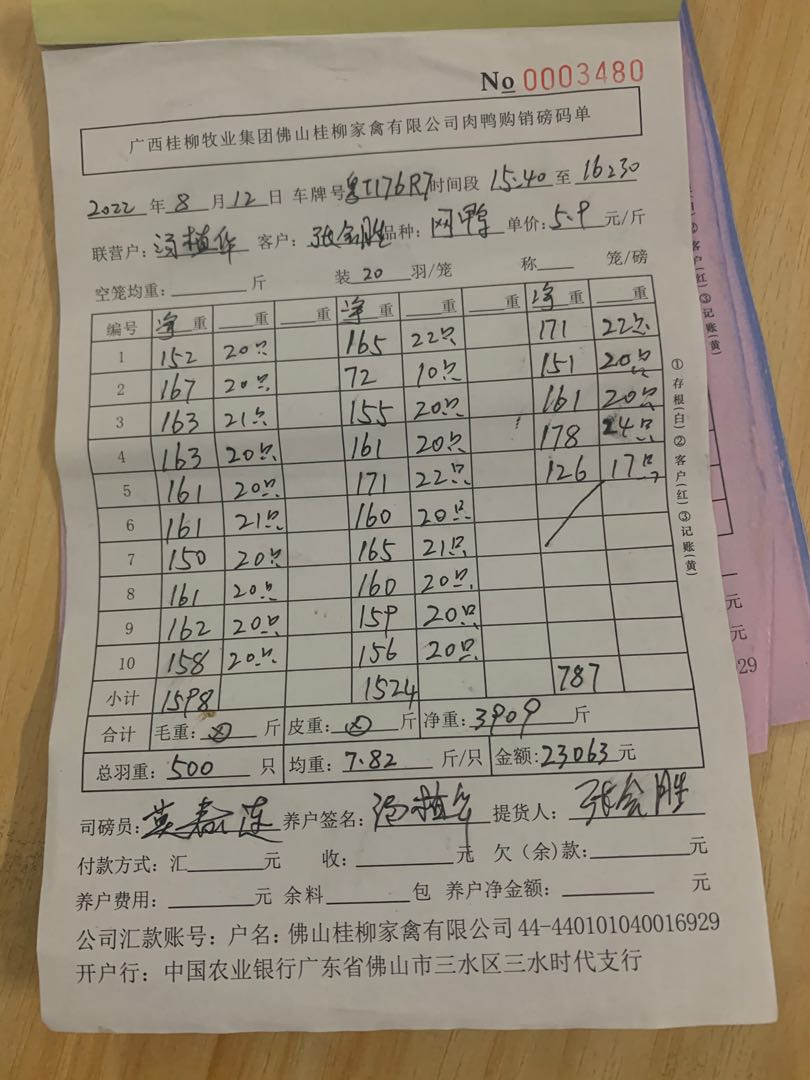 No 0003480
广西桂柳牧业集团佛山桂柳家禽有限公司肉鸭购销磅码单
2022 年 8 月 12 日 车牌号 粤T176R7 时间段 15:40 至 16:30
联营户: 汤植华 客户: 张会胜 品种: 网鸭 单价: 5.9 元/斤
空笼均重: 斤 装 20 羽/笼 称 笼/磅
编号 净重 重 重 净重 重 重 净重 重
1 152 20只 165 22只 171 22只
2 167 20只 72 10只 151 20只
3 163 21只 155 20只 161 20只
4 163 20只 161 20只 178 24只
5 161 20只 171 22只 126 17只
6 161 21只 160 20只
7 150 20只 165 21只
8 161 20只 160 20只
9 162 20只 159 20只
10 158 20只 156 20只
小计 1598 1524 787
合计 毛重: 斤 皮重: 斤 净重: 3909 斤
总羽重: 500 只 均重: 7.82 斤/只 金额: 23063 元
司磅员: 养户签名: 汤植华 提货人: 张会胜
付款方式: 汇 元 收: 元 欠(余)款: 元
养户费用: 元 余料 包 养户净金额: 元
公司汇款账号: 户名: 佛山桂柳家禽有限公司 44-440101040016929
开户行: 中国农业银行广东省佛山市三水区三水时代支行
①存根(白)②客户(红)③记账(黄)
②客户(红)③记账(黄)
元
元
929